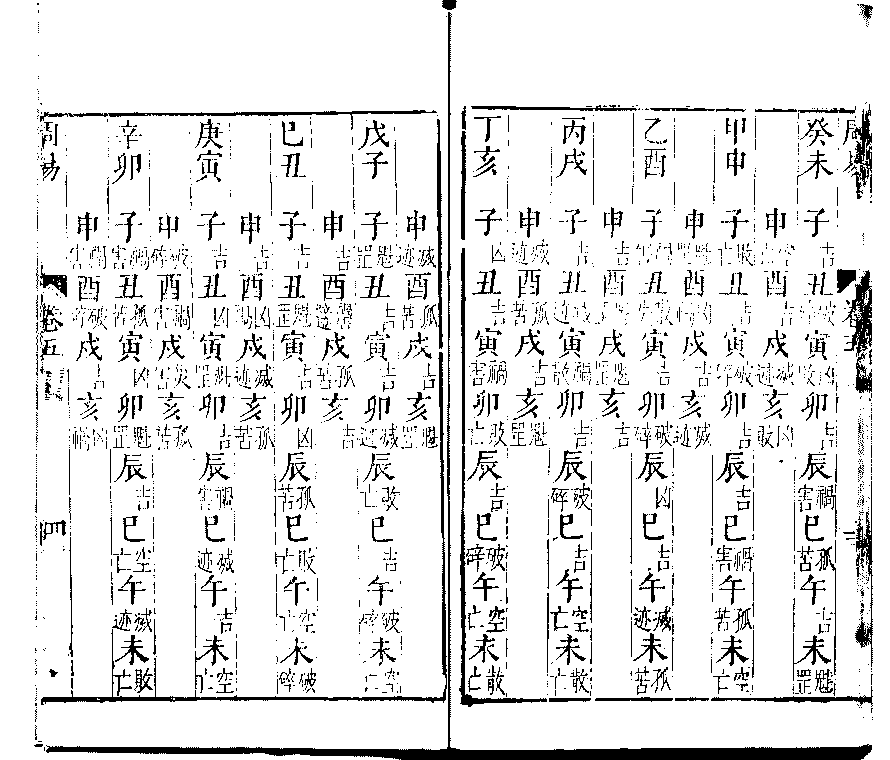 周易 卷五
癸未 子吉 丑破 寅凶敗 卯吉 辰禍害 巳孤苦 午吉 未魁罡
申空 酉吉 戌滅迹 亥凶敗
甲申 子敗亡 丑吉 寅破碎 卯吉 辰吉 巳禍害 午孤苦 未空亡
申魁罡 酉凶禍 戌吉 亥滅迹
乙酉 子禍害 丑敗亡 寅吉 卯破碎 辰凶 巳吉 午滅迹 未孤苦
申吉 酉吉 戌魁罡 亥吉
丙戌 子吉 丑滅迹 寅禍敗 卯吉 辰破碎 巳吉 午空亡 未散亡
申滅迹 酉孤苦 戌吉 亥魁罡
丁亥 子凶 丑吉 寅禍害 卯敗亡 辰吉 巳破碎 午空亡 未散亡
申滅迹 酉孤苦 戌吉 亥魁罡
戊子 子魁罡 丑吉 寅吉 卯滅迹 辰敗亡 巳吉 午破碎 未空亡
申吉 酉 戌孤苦 亥吉
巳丑 子吉 丑魁罡 寅吉 卯凶 辰孤苦 巳敗亡 午空亡 未破碎
申吉 酉凶禍 戌滅迹 亥孤苦
庚寅 子吉 丑凶 寅魁罡 卯吉 辰禍害 巳滅迹 午吉 未空亡
申破碎 酉禍害 戌災害 亥孤苦
辛卯 子禍害 丑孤苦 寅凶 卯魁罡 辰吉 巳空亡 午滅迹 未敗亡
申禍害 酉破碎 戌吉 亥凶禍
周易 卷五 四